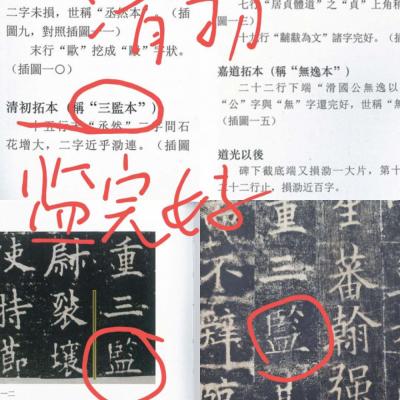 二字未損，世稱“丞然本”。（插
圖九，對照插圖一一）
末行“歐”挖成“毆”字狀。
（插圖一〇）
清初拓本（稱“三監本”）
十五行“丞然”二字間石
花增大，二字近乎泐連。（插圖
七行“居貞體道”之“貞”上角稍
圖一三）
十九行“黼黻為文”諸字完好。（插
嘉道拓本（稱“無逸本”）
二十二行下端“滑國公無逸以
“公”字與“無”字還完好，世稱“無
圖一五）
道光以後
碑下截底端又損泐一大片，第十
三十二行止，損泐近百字。
清初
监完好
重三監
尉裂壤
持節
一二
蕃翰强
重三監
不辭